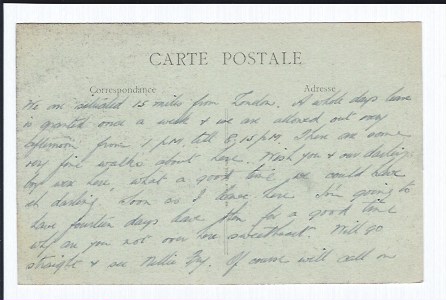 CARTE POSTALE
Correspondance Adresse
We are situated 15 miles from London. A whole days leave
is granted once a week & we are allowed out every
afternoon from 1 P.M. till 8,15 P.M. There are some
very fine walks about here. Wish you & our darling
boy were here, what a good time we could have
eh darling. Soon as I leave here I'm going to
have fourteen days leave then for a good time
why are you not over here sweetheart. Will go
straight & see Nellie . Of course will call on